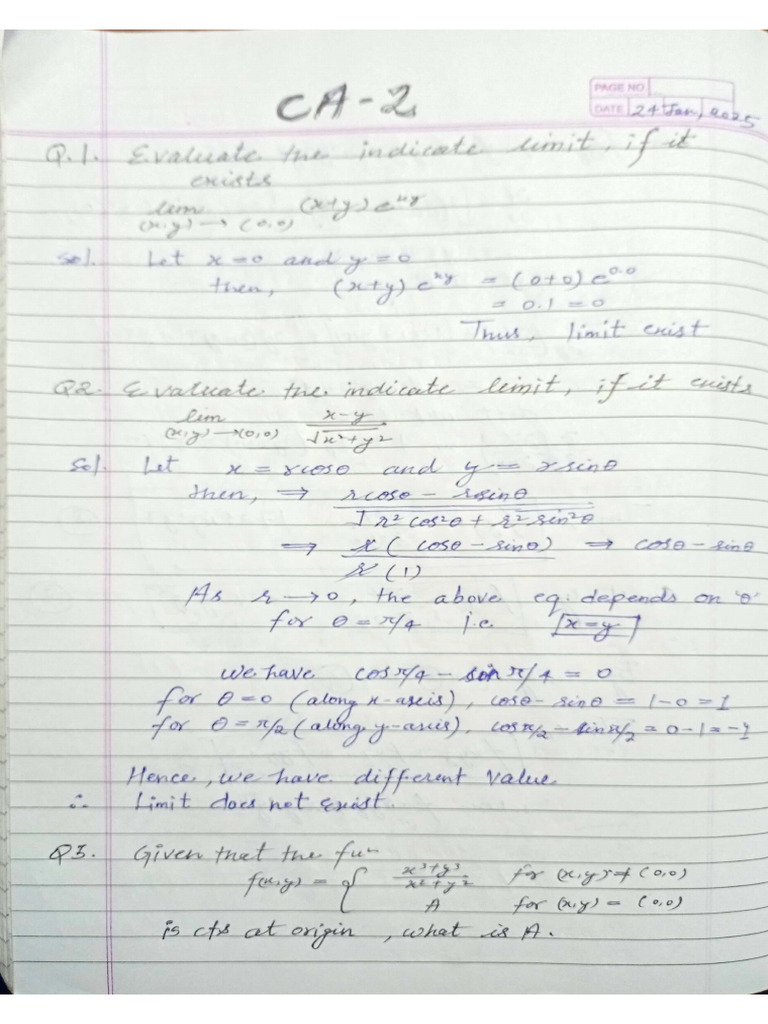 CA-2
PAGE NO.
DATE 24 Jan, 2025
Q.1. Evaluate the indicate limit, if it
exists
lim (x,y)→(0,0) (x+y)e^xy
Sol. Let x=0 and y=0
then, (x+y)e^xy = (0+0)e^0.0
= 0.1 = 0
Thus, limit exist
Q2. Evaluate the indicate limit, if it exists
lim (x,y)→(0,0) x-y / √x²+y²
Sol. Let x = rcosθ and y = rsinθ
then, ⇒ rcosθ - rsinθ / √r²cos²θ + r²sin²θ
⇒ r(cosθ - sinθ) / r(1) ⇒ cosθ - sinθ
As r→0, the above eq. depends on 'θ'
for θ = π/4 i.e x=y
we have cosπ/4 - sinπ/4 = 0
for θ=0 (along x-axis), cosθ- sinθ = 1-0 = 1
for θ=π/2 (along y-axis), cosπ/2 - sinπ/2 = 0-1 = -1
Hence, we have different value
∴ Limit does not exist.
Q3. Given that the fun
f(x,y) = { x³+y³ / x²+y² for (x,y) ≠ (0,0)
A for (x,y) = (0,0)
is cts at origin, what is A.